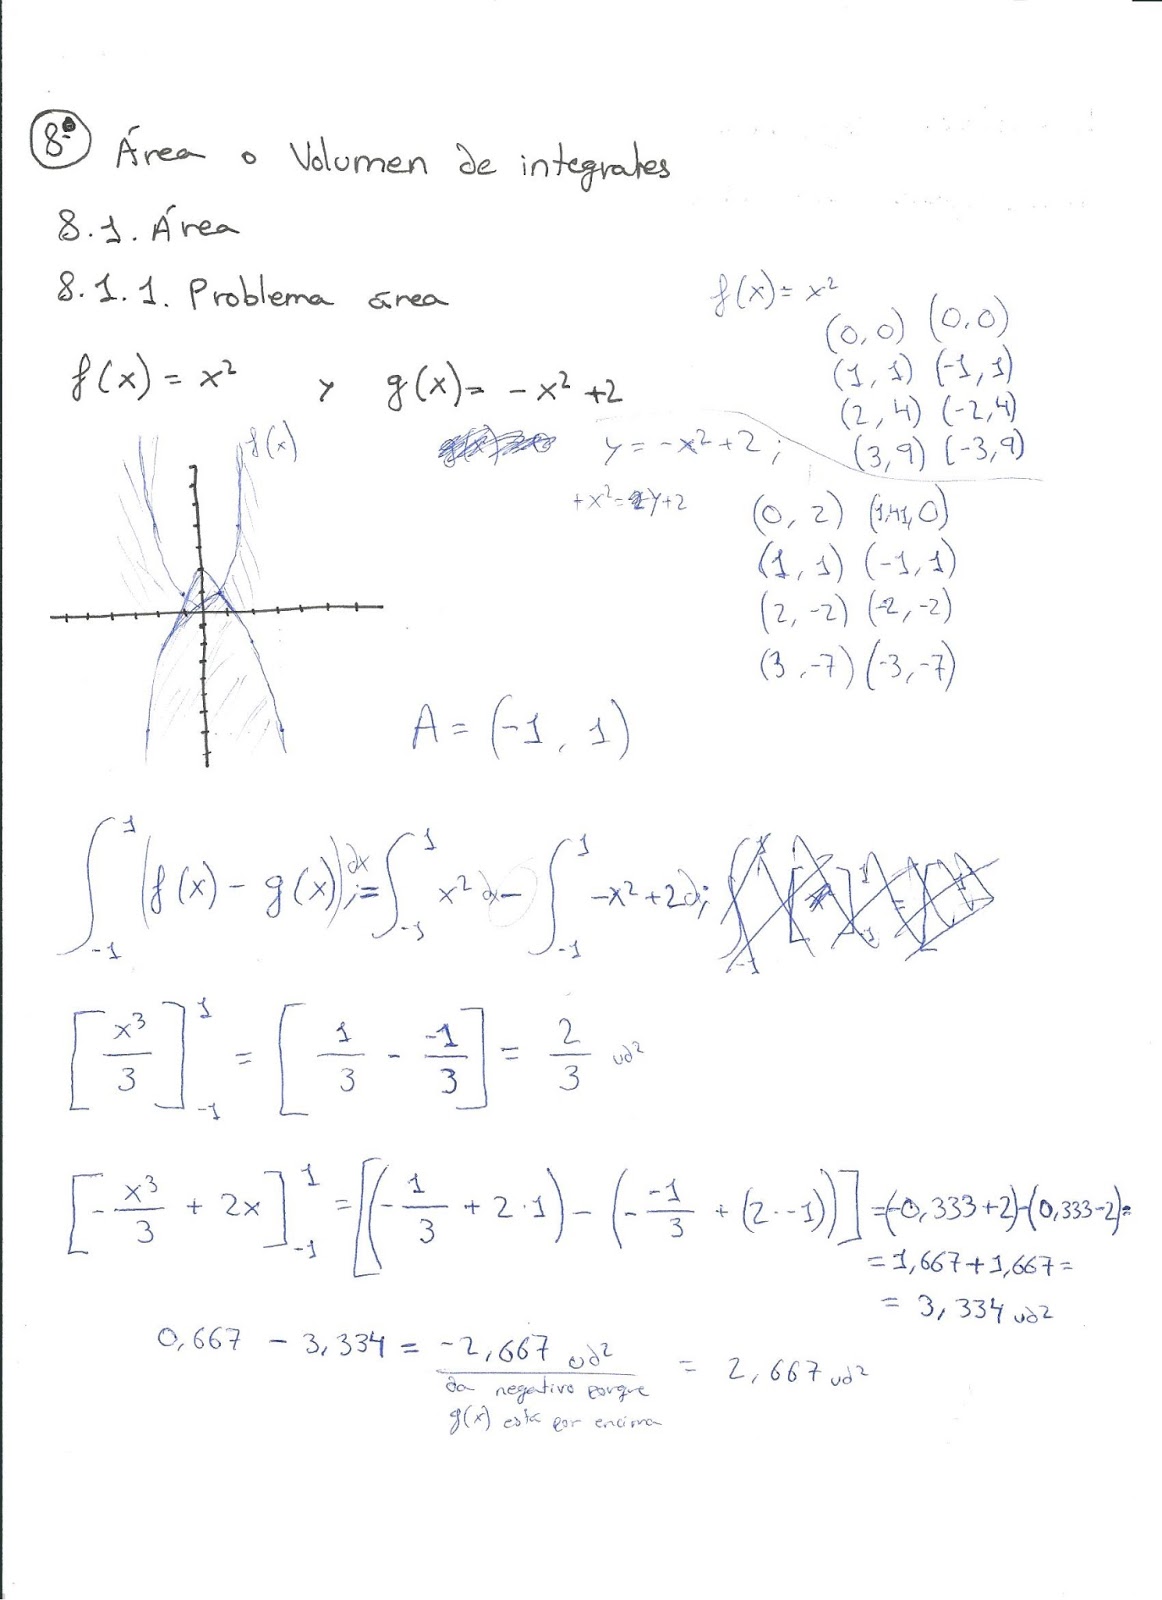 8º Área o Volumen de integrales
8.1. Área
8.1.1. Problema área
f(x) = x² y g(x) = -x² + 2
f(x) = x²
(0, 0) (0, 0)
(1, 1) (-1, 1)
(2, 4) (-2, 4)
(3, 9) (-3, 9)
y = -x² + 2 ;
+x² = -y + 2
(0, 2) (1,41, 0)
(1, 1) (-1, 1)
(2, -2) (-2, -2)
(3, -7) (-3, -7)
f(x)
A = (-1, 1)
∫₋₁¹ (f(x) - g(x)) dx ; = ∫₋₁¹ x² dx - ∫₋₁¹ -x² + 2 d ;
[x³/3]₋₁¹ = [1/3 - -1/3] = 2/3 ud²
[-x³/3 + 2x]₋₁¹ = [(-1/3 + 2·1) - (- -1/3 + (2·-1))] = (-0,333+2)-(0,333-2) =
= 1,667 + 1,667 =
= 3,334 ud²
0,667 - 3,334 = -2,667 ud² = 2,667 ud²
da negativo porque
g(x) está por encima